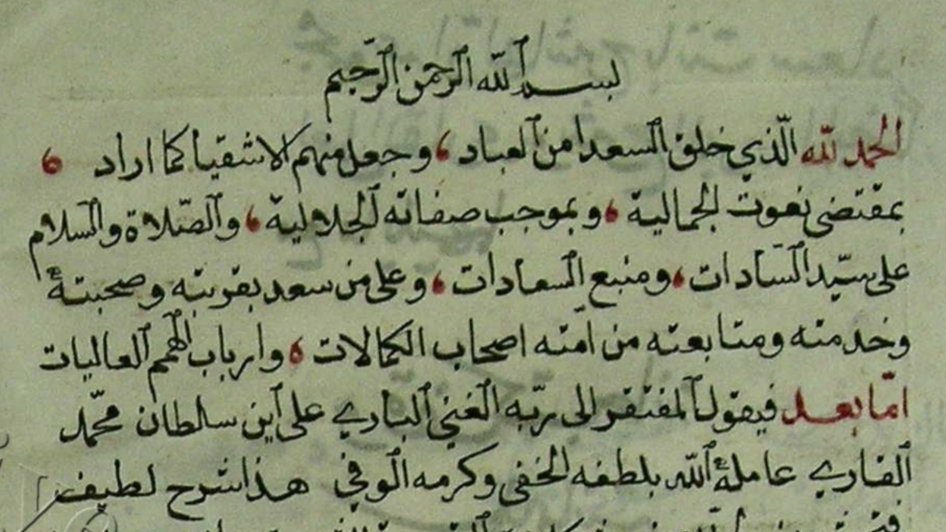 بسم الله الرحمن الرّحيم
الحمد لله الّذي خلق السعدا من العباد ، وجعل منهم الاشقيا كما اراد ،
بمقتضى نعوت الجمالية ، وبموجب صفاته الجلالية ، والصّلاة والسلام
على سيّد السّادات ، ومنبع السعادات ، وعلى من سعد بقربته وصحبته
وخدمته ومتابعته من امّته اصحاب الكمالات ، وارباب الهمم العاليات
امّا بعد فيقول المفتقر الى ربّه الغني الباري علي ابن سلطان محمّد
القاري عامله الله بلطفه الخفى وكرمه الوفي هذا شرح لطيف